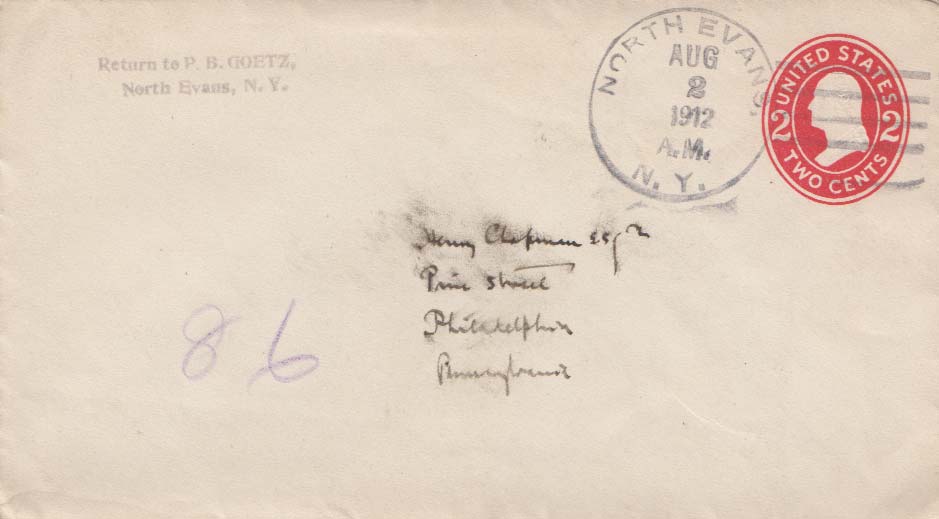 Return to P. B. GOETZ,
North Evans, N. Y.
NORTH EVANS,
AUG
2
1912
A.M.
N. Y.
UNITED STATES
2 2
TWO CENTS
Henry Chapman Esqr
Pine Street
Philadelphia
Pennsylvania
86